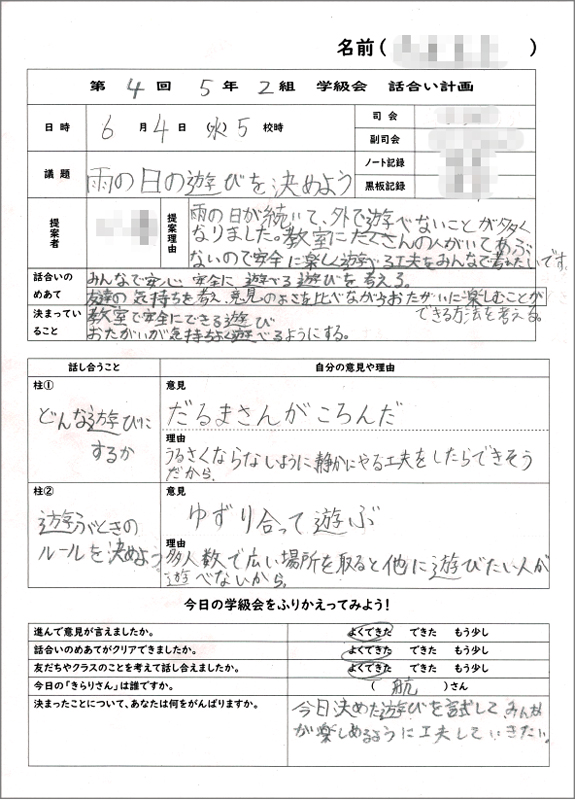 名前( )
第 4 回 5 年 2 組 学級会 話合い計画
日時 6 月 4 日 (水) 5 校時
司会
副司会
ノート記録
黒板記録
議題 雨の日の遊びを決めよう
提案者
提案理由
雨の日が続いて、外で遊べないことが多く
なりました。教室にたくさんの人がいてあぶ
ないので安全に楽しく遊べる工夫をみんなで考えたいです。
話合いのめあて
みんなで安心、安全に遊べる遊びを考える。
友達の気持ちを考え、意見のよさを比べながらおたがいに楽しむことが
できる方法を考える。
決まっていること
教室で安全にできる遊び
おたがいが気持ちよく遊べるようにする。
話し合うこと 自分の意見や理由
柱①
どんな遊びに
するか
意見
だるまさんがころんだ
理由
うるさくならないように静かにやる工夫をしたらできそう
だから。
柱②
遊ぶときの
ルールを決めよう
意見
ゆずり合って遊ぶ
理由
多人数で広い場所を取ると他に遊びたい人が
遊べないから。
今日の学級会をふりかえってみよう!
進んで意見が言えましたか。 よくできた できた もう少し
話合いのめあてがクリアできましたか。 よくできた できた もう少し
友だちやクラスのことを考えて話し合えましたか。 よくできた できた もう少し
今日の「きらりさん」は誰ですか。 ( 航 )さん
決まったことについて、あなたは何をがんばりますか。
今日決めた遊びを試して みんな
が楽しめるように工夫していきたい。